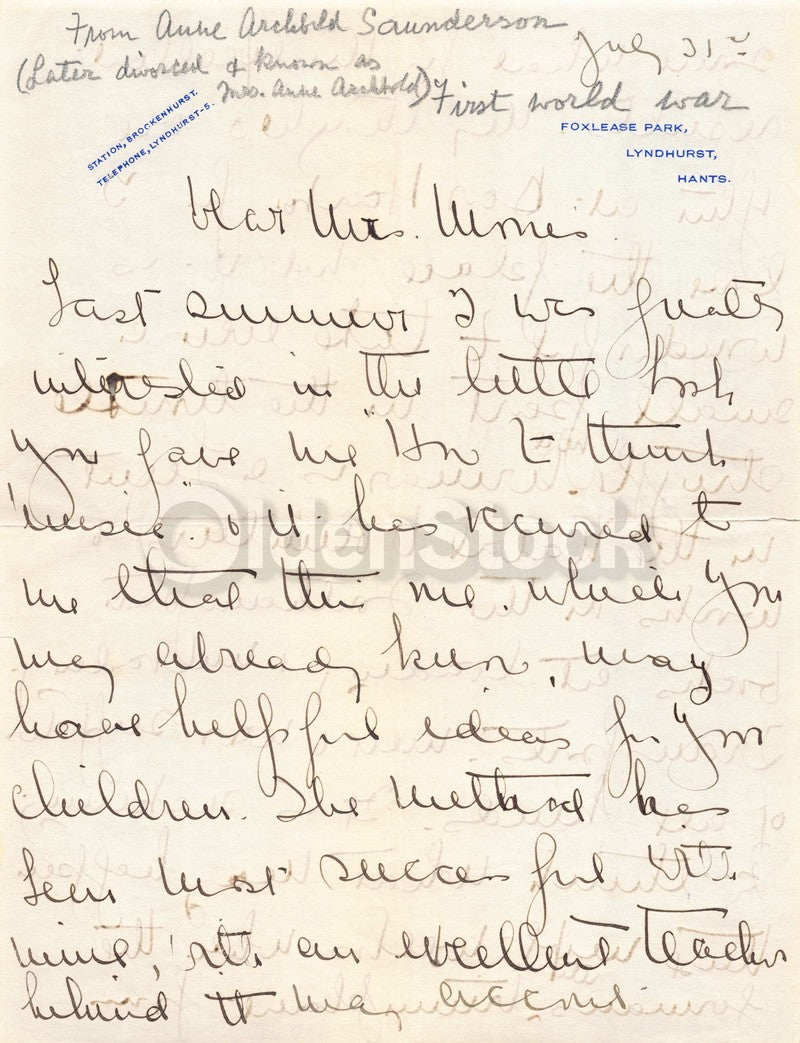 From Anne Archbold Saunderson
(Later divorced & known as
Mrs. Anne Archbold)
July 31st
First world war
STATION, BROCKENHURST.
TELEPHONE, LYNDHURST-5.
FOXLEASE PARK,
LYNDHURST,
HANTS.
Dear Mrs.
Last summer I was greatly
interested in the little book
you gave me "How to think
music". & it has occured to
me that this one, which you
may already know, may
have helpful ideas for your
children. The method has
been most successful with
mine, with an excellent teacher
behind it may account
OldenStock